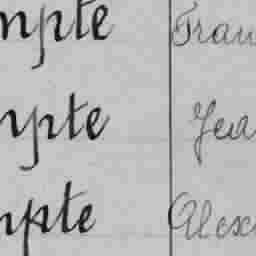 mpte Fran
mpte Jea
mpte Alex